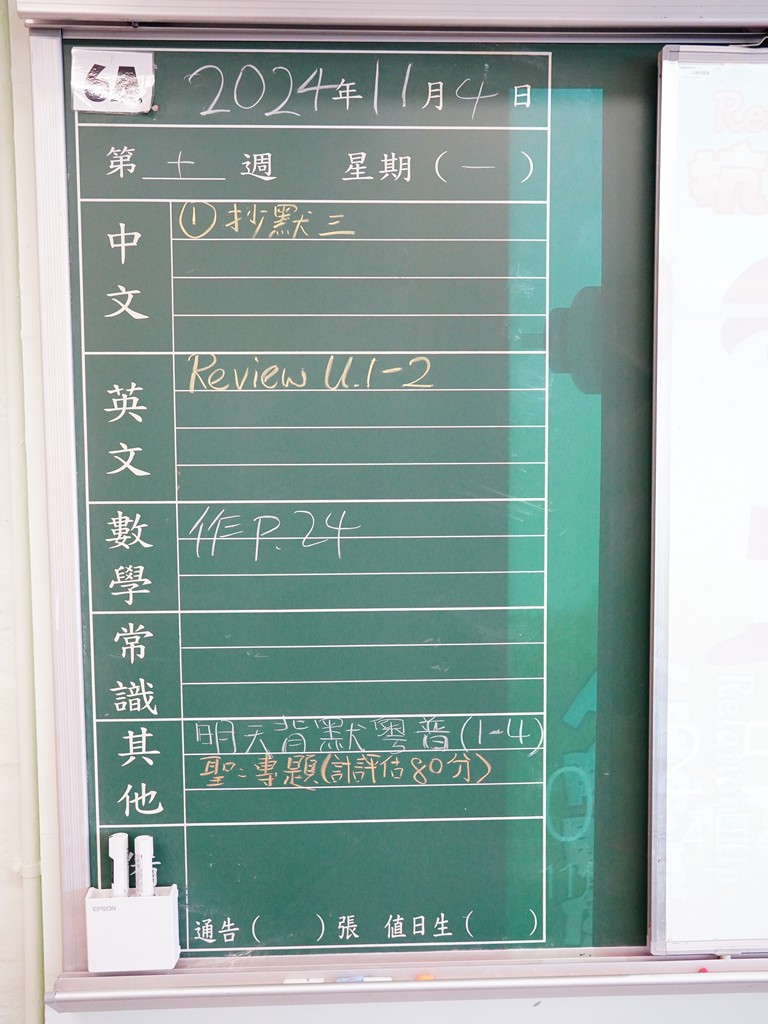 6A
2024年11月4日
第十週 星期(一)
中文
①抄默三
英文
Review U.1-2
數學
作P.24
常識
其他
明天背默粵普(1-4)
聖:專題(計評估80分)
EPSON
通告( )張 值日生( )